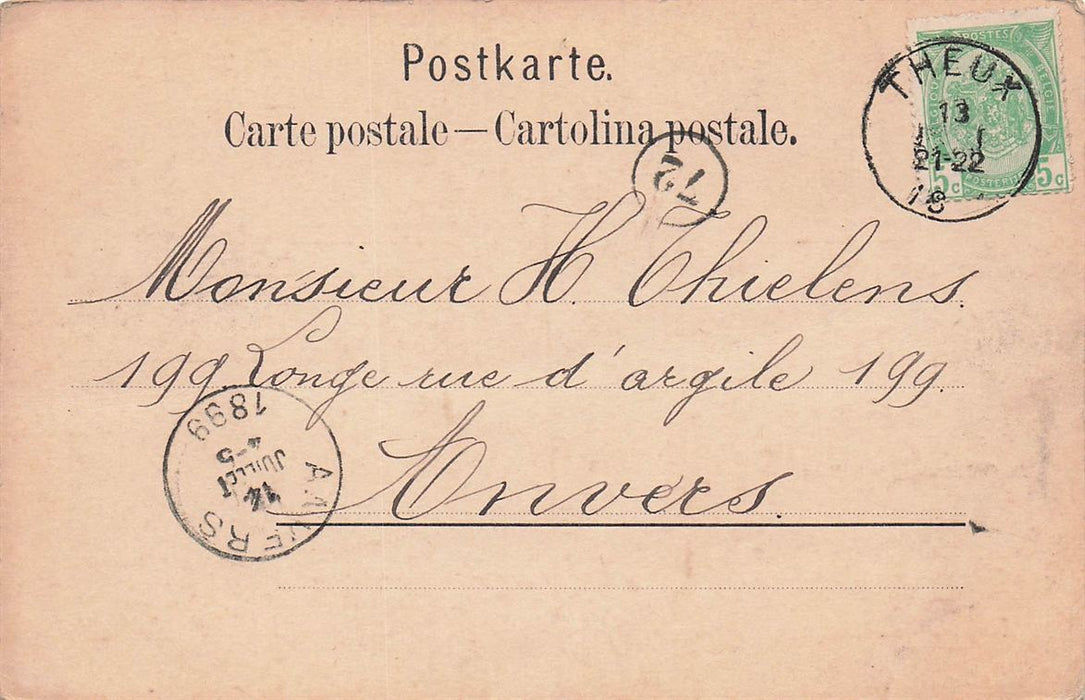 Postkarte.
Carte postale — Cartolina postale.
POSTES
5c 5c
THEUX
13
21-22
18
72
Monsieur H. Thielens.
199. Longe rue d'argile 199.
Anvers.
ANVERS
14
JUILLET
4-5
1899